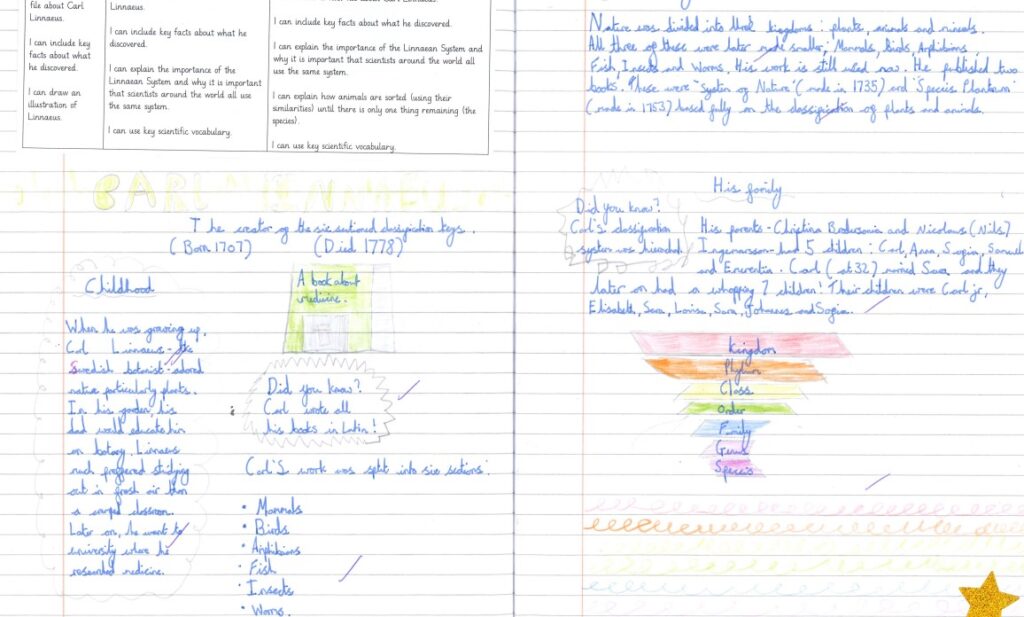 file about Carl
Linnaeus.
I can include key
facts about what
he discovered.
I can draw an
illustration of
Linnaeus.
Linnaeus.
I can include key facts about what he
discovered.
I can explain the importance of the
Linnaean System and why it is important
that scientists around the world all use
the same system.
I can use key scientific vocabulary.
I can include key facts about what he discovered.
I can explain the importance of the Linnaean System and
why it is important that scientists around the world all
use the same system.
I can explain how animals are sorted (using their
similarities) until there is only one thing remaining (the
species).
I can use key scientific vocabulary.
CARL LINNAEU
The creator of the six sectioned classification keys.
(Born 1707) (Died 1778)
Childhood
When he was growing up,
Carl Linnaeus - the
Swedish botanist - adored
nature particularly plants.
In his garden, his
dad would educate him
on botany. Linnaeus
much preffered studying
out in fresh air than
a cramped classroom.
Later on, he went to
university where he
researched medicine.
A book about
medicine.
Did you know?
Carl wrote all
his books in Latin!
Carl's work was split into six sections:
• Mammals
• Birds
• Amphibians
• Fish
• Insects
• Worms.
Nature was divided into three kingdoms: plants, animals and minerals.
All three of these were later made smaller; Mammals, Birds, Amphibians,
Fish, Insects and Worms. His work is still used now. He published two
books. These were "System of Nature" (made in 1735) and "Species Plantarum"
(made in 1753) based fully on the classification of plants and animals.
Did you know?
Carl's classification
system was hierachal.
His family
His parents - Christina Brodersonia and Nicolaus (Nils)
Ingemarsson - had 5 children: Carl, Anna, Sofia, Samuel
and Emerentia. Carl (at 32) married Sara and they
later on had a whopping 7 children! Their children were Carl jr,
Elisabeth, Sara, Lovisa, Sara, Johannes and Sofia.
Kingdom
Phylum
Class
Order
Family
Genus
Species